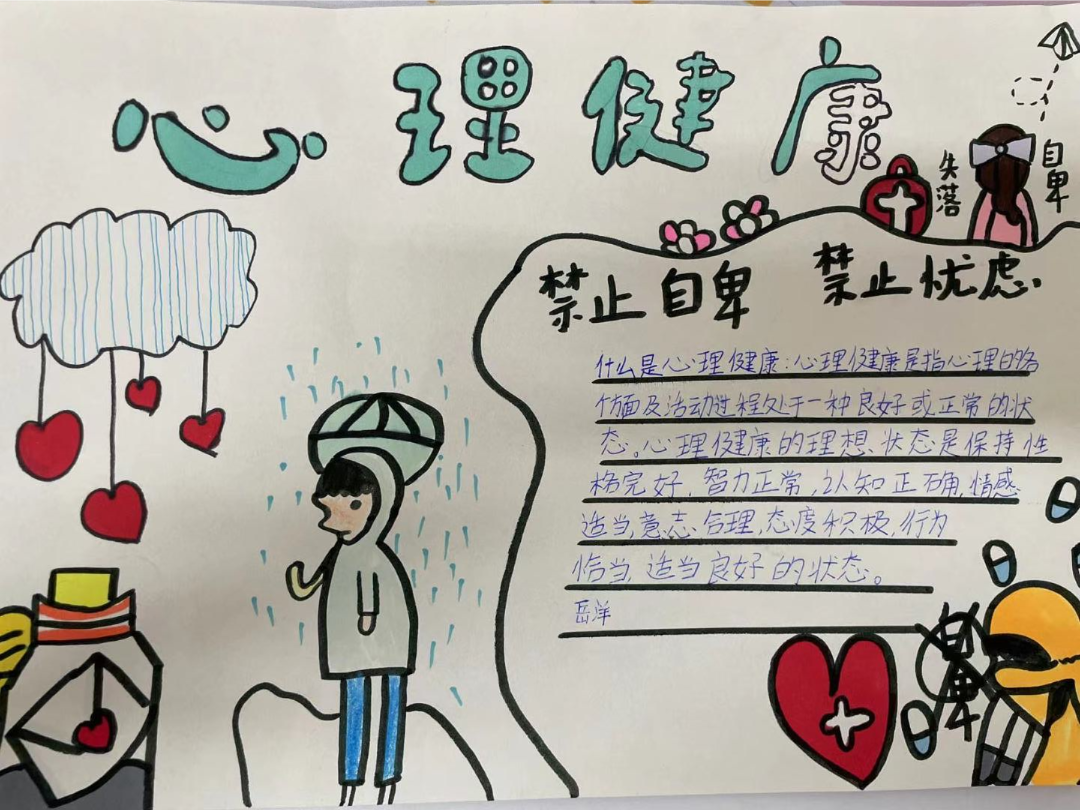 心理健康
失落
自卑
禁止自卑 禁止忧虑
什么是心理健康:心理健康是指心理的各
个方面及活动过程处于一种良好或正常的状
态。心理健康的理想状态是保持性
格完好,智力正常,认知正确,情感
适当,意志合理,态度积极,行为
恰当,适当良好的状态。
岳洋
自卑